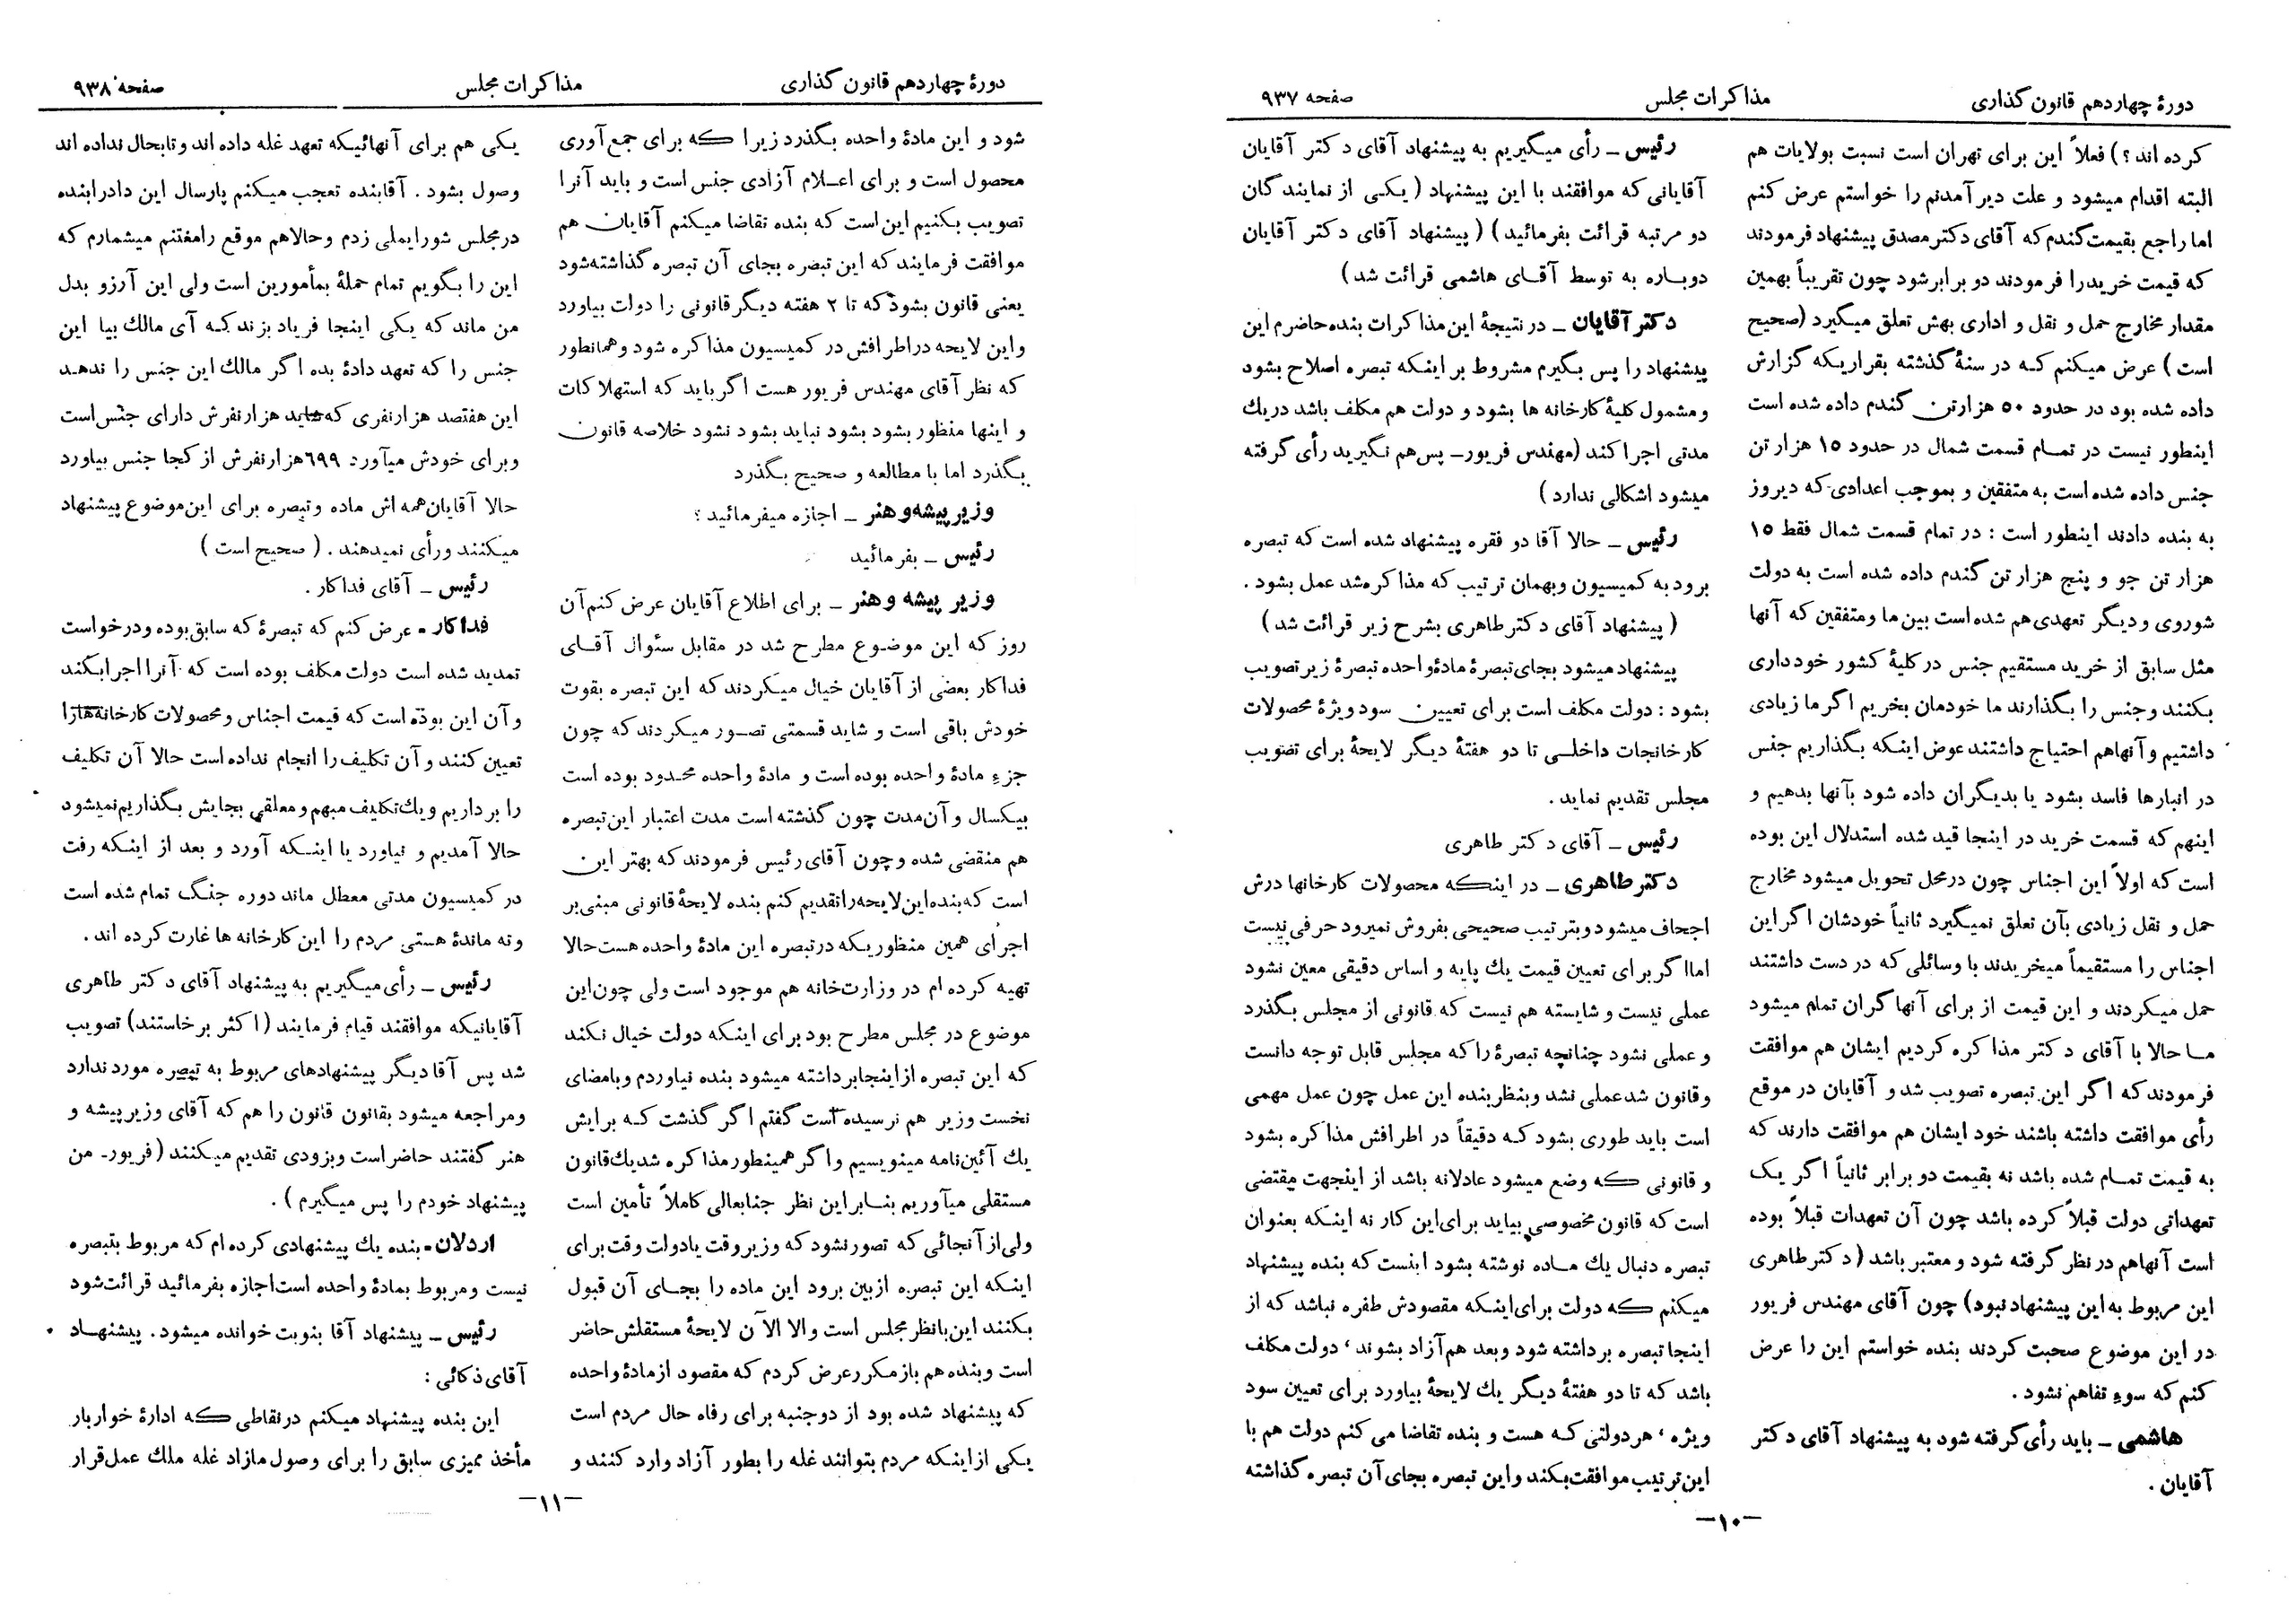 دورهٔ چهاردهم قانون گذاری
مذاکرات مجلس
صفحه ۹۳۷
کرده اند ؟ ) فعلاً این برای تهران است نسبت بولایات هم
البته اقدام میشود و علت دیر آمدنم را خواستم عرض کنم
اما راجع بقیمت گندم که آقای دکتر مصدق پیشنهاد فرمودند
که قیمت خرید را فرمودند دو برابر شود چون تقریباً بهمین
مقدار مخارج حمل و نقل و اداری بهش تعلق میگیرد (صحیح
است ) عرض میکنم کـه در سنهٔ گذشته بقراریکه گزارش
داده شده بود در حدود ۵۰ هزارتن گندم داده شده است
اینطور نیست در تمـام قسمت شمال در حدود ۱۵ هزار تن
جنس داده شده است به متفقین و بموجب اعدادی که دیروز
به بنده دادند اینطور است : در تمام قسمت شمال فقط ۱۵
هزار تن جو و پنج هزار تن گندم داده شده است به دولت
شوروی و دیگر تعهدی هم شده است بین ما ومتفقین که آنها
مثل سابق از خرید مستقیم جنس در کلیهٔ کشور خود داری
بکنند و جنس را بگذارند ما خودمان بخریم اگر ما زیادی
داشتیم و آنهاهم احتیاج داشتند عوض اینکه بگذاریم جنس
در انبارها فاسد بشود یا بدیگران داده شود بآنها بدهیم و
اینهم که قسمت خرید در اینجا قید شده استدلال این بوده
است که اولاً این اجناس چون در محل تحویل میشود مخارج
حمل و نقل زیادی بآن تعلق نمیگیرد ثانیاً خودشان اگر این
اجناس را مستقیماً میخریدند با وسائلی که در دست داشتند
حمل میکردند و این قیمت از برای آنها گران تمام میشود
مـا حالا با آقای دکتر مذاکره کردیم ایشان هم موافقت
فرمودند که اگر این تبصره تصویب شد و آقایان در موقع
رأی موافقت داشته باشند خود ایشان هم موافقت دارند که
به قیمت تمـام شده باشد نه بقیمت دو برابر ثانیاً اگر یک
تعهداتی دولت قبلاً کرده باشد چون آن تعهدات قبلاً بوده
است آنهاهم در نظر گرفته شود و معتبر باشد ( دکتر طاهری
این مربوط به این پیشنهاد نبود) چون آقای مهندس فریور
در این موضوع صحبت کردند بنده خواستم این را عرض
کنم که سوء تفاهم نشود .
هاشمی ــ باید رأی گرفته شود به پیشنهاد آقای دکتر
آقایان .
رئیس ــ رأی میگیریم به پیشنهاد آقای دکتر آقایان
آقایانی که موافقند با این پیشنهاد ( یکی از نمایندگان
دو مرتبه قرائت بفرمائید ) ( پیشنهاد آقای دکتر آقایان
دوباره به توسط آقـای هاشمی قرائت شد )
دکتر آقایان ــ در نتیجهٔ این مذاکرات بنده حاضرم این
پیشنهاد را پس بگیرم مشروط بر اینکه تبصره اصلاح بشود
و مشمول کلیهٔ کارخانه ها بشود و دولت هم مکلف باشد در یك
مدتی اجرا کند (مهندس فریور ــ پس هم نگیرید رأی گرفته
میشود اشکالی ندارد )
رئیس ــ حالا آقا دو فقره پیشنهاد شده است که تبصره
برود به کمیسیون وبهمان ترتیب که مذاکره شد عمل بشود .
( پیشنهاد آقای دکتر طاهری بشرح زیر قرائت شد )
پیشنهاد میشود بجای تبصرهٔ مادهٔ واحده تبصرهٔ زیر تصویب
بشود : دولت مکلف است برای تعیین سود ویژهٔ محصولات
کارخانجات داخلـی تا دو هفتهٔ دیگر لایحهٔ برای تصویب
مجلس تقدیم نماید .
رئیس ــ آقای دکتر طاهری
دکتر طاهری ــ در اینکه محصولات کارخانها درش
اجحاف میشود و بترتیب صحیحی بفروش نمیرود حرفی نیست
اما اگر برای تعیین قیمت یك پایه و اساس دقیقی معین نشود
عملی نیست و شایسته هم نیست که قانونی از مجلس بگذرد
و عملی نشود چنانچه تبصرهٔ را که مجلس قابل توجه دانست
وقانون شد عملی نشد وبنظر بنده این عمل چون عمل مهمی
است باید طوری بشود کـه دقیقاً در اطرافش مذاکره بشود
و قانونی کـه وضع میشود عادلانه باشد از اینجهت مقتضی
است که قانون مخصوصی بیاید برای این کار نه اینکه بعنوان
تبصره دنبال یك مـاده نوشته بشود اینست که بنده پیشنهاد
میکنم کـه دولت برای اینکه مقصودش طفره نباشد که از
اینجا تبصره برداشته شود وبعد هم آزاد بشوند ، دولت مکلف
باشد که تا دو هفتهٔ دیگر یك لایحهٔ بیاورد برای تعیین سود
ویژه ، هر دولتی کـه هست و بنده تقاضا می کنم دولت هم با
این ترتیب موافقت بکند واین تبصره بجای آن تبصره گذاشته
ــ۱۰ــ
دورهٔ چهاردهم قانون گذاری
مذاکرات مجلس
صفحه ۹۳۸
شود و این مادهٔ واحده بگذرد زیرا کـه برای جمع آوری
محصول است و برای اعـلام آزادی جنس است و باید آنرا
تصویب بکنیم این است که بنده تقاضا میکنم آقایان هم
موافقت فرمایند که این تبصره بجای آن تبصره گذاشته شود
یعنی قانون بشود که تا ۲ هفته دیگر قانونی را دولت بیاورد
واین لایحه در اطرافش در کمیسیون مذاکره شود وهمانطور
که نظر آقای مهندس فریور هست اگر باید که استهلاکات
و اینها منظور بشود بشود نباید بشود نشود خلاصه قانون
بگذرد اما با مطالعه و صحیح بگذرد
وزیر پیشه و هنر ــ اجازه میفرمائید ؟
رئیس ــ بفرمائید
وزیر پیشه و هنر ــ برای اطلاع آقایان عرض کنم آن
روز که این موضـوع مطرح شد در مقابل سئوال آقـای
فداکار بعضی از آقایان خیال میکردند که این تبصره بقوت
خودش باقی است و شاید قسمتی تصـور میکردند که چون
جزء مادهٔ واحده بوده است و مادهٔ واحده محدود بوده است
بیکسال و آن مدت چون گذشته است مدت اعتبار این تبصره
هم منقضی شده و چون آقای رئیس فرمودند که بهتر این
است که بنده این لایحه را تقدیم کنم بنده لایحهٔ قانونی مبنی بر
اجرای همین منظوریکه در تبصره این مادهٔ واحده هست حالا
تهیه کرده ام در وزارت خانه هم موجود است ولی چون این
موضوع در مجلس مطرح بود برای اینکه دولت خیال نکند
که این تبصره از اینجا برداشته میشود بنده نیاوردم وبامضای
نخست وزیر هم نرسیده است گفتم اگر گذشت کـه برایش
یك آئین نامه مینویسیم و اگر همینطور مذاکره شد یك قانون
مستقلی میآوریم بنـابر این نظر جنابعالی کاملاً تأمین است
ولی از آنجائی که تصور نشود که وزیر وقت یا دولت وقت برای
اینکه این تبصره از بین برود این ماده را بجـای آن قبول
بکنند این با نظر مجلس است والا الآن لایحهٔ مستقلش حاضر
است وبنده هم باز مکرر عرض کردم که مقصود از مادهٔ واحده
که پیشنهاد شده بود از دو جنبه برای رفاه حال مردم است
یکی از اینکه مردم بتوانند غله را بطور آزاد وارد کنند و
یکی هم برای آنهائیکه تعهد غله داده اند و تابحال نداده اند
وصول بشود . آقا بنده تعجب میکنم پارسال این داد را بنده
در مجلس شورایملی زدم و حالا هم موقع را مغتنم میشمارم که
این را بگویم تمام حملهٔ بمأمورین است ولی این آرزو بدل
من ماند که یکی اینجا فریاد بزند که آی مالك بیا این
جنس را که تعهد دادهٔ بده اگر مالك این جنس را ندهد
این هفتصد هزار نفری که شاید هزار نفرش دارای جنس است
وبرای خودش میآورد ۶۹۹ هزار نفرش از کجا جنس بیاورد
حالا آقایان همه اش ماده و تبصره برای این موضوع پیشنهاد
میکنند ورأی نمیدهند . ( صحیح است )
رئیس ــ آقای فداکار .
فداکار ــ عرض کنم که تبصرهٔ که سابق بوده و درخواست
تمدید شده است دولت مکلف بوده است که آنرا اجرا بکند
و آن این بوده است که قیمت اجناس و محصولات کارخانه ها را
تعیین کنند و آن تکلیف را انجام نداده است حالا آن تکلیف
را برداریم و یك تکلیف مبهم و معلقی بجایش بگذاریم نمیشود
حالا آمدیم و نیاورد یا اینـکه آورد و بعد از اینکه رفت
در کمیسیون مدتی معطل ماند دوره جنگ تمام شده است
وته ماندهٔ هستی مردم را این کارخانه ها غارت کرده اند .
رئیس ــ رأی میگیریم به پیشنهاد آقای دکتر طاهری
آقایانیکه موافقند قیام فرمایند (اکثر برخاستند) تصویب
شد پس آقا دیگر پیشنهادهای مربوط به تبصره مورد ندارد
ومراجعه میشود بقانون قانون را هم که آقای وزیر پیشه و
هنر گفتند حاضر است وبزودی تقدیم میکنند ( فریور ــ من
پیشنهاد خودم را پس میگیرم ) .
اردلان ــ بنده یك پیشنهادی کرده ام که مربوط بتبصره
نیست ومربوط بمادهٔ واحده است اجازه بفرمائید قرائت شود
رئیس ــ پیشنهاد آقا بنوبت خوانده میشود . پیشنهـاد
آقای ذکائی :
این بنده پیشنهاد میکنم در نقاطی کـه ادارهٔ خواربار
مأخذ ممیزی سابق را برای وصول مازاد غله ملك عمل قرار
ــ۱۱ــ